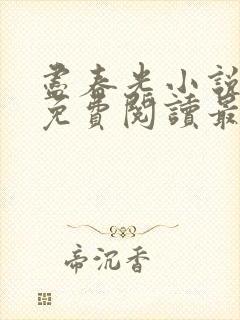 盡春光小說
免費閱讀最
帝沉香